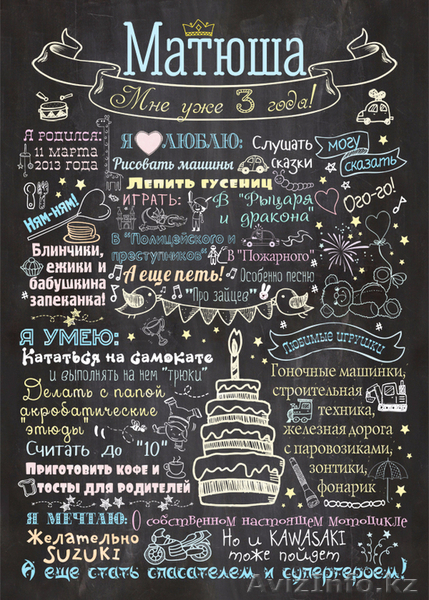 Матюша
Мне уже 3 года!
Я родился:
11 марта
2013 года
Я ЛЮБЛЮ:
Рисовать машины
Слушать
сказки
могу
сказать
Ого-го!
Лепить гусениц
ИГРАТЬ:
В "Рыцаря
и дракона"
Ням-ням!
Блинчики,
ежики и
бабушкина
запеканка!
В "Полицейского и
преступников"
В "Пожарного"
А еще петь!
Особенно песню
"Про зайцев"
Я УМЕЮ:
Кататься на самокате
и выполнять на нем "трюки"
Делать с папой
акробатические
"этюды"
Считать до "10"
Приготовить кофе и
тосты для родителей
Любимые игрушки
Гоночные машинки,
строительная
техника,
железная дорога
с паровозиками,
зонтики,
фонарик
Я МЕЧТАЮ:
О собственном настоящем мотоцикле
Желательно
SUZUKI
Но и KAWASAKI
тоже пойдет
А еще стать спасателем и супергероем!
AvizInfo.kz